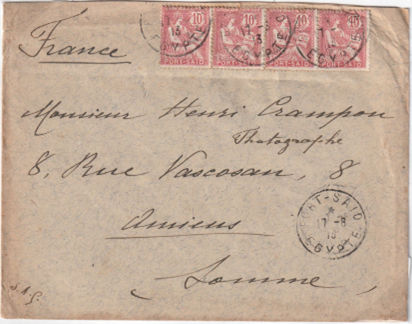 10 10 10 10
PORT-SAID PORT-SAID PORT-SAID PORT-SAID
EGYPTE EGYPTE EGYPTE
France
Monsieur Henri Crampon
Photographe
8, Rue Vascosan, 8
Amiens
Somme
PORT-SAID
17-8
EGYPTE